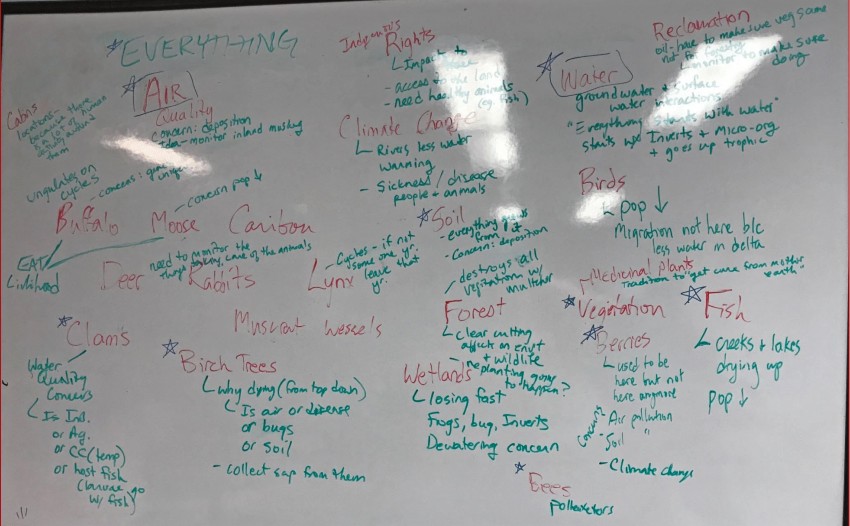 EVERYTHING
AIR
Quality
concern: deposition
Idea - monitor inland muskeg
Cabins
locations -
because there
a lot of human
activity around
them
Indigenous
Rights
Impacts to
- access to the land
- need healthy animals
(eg fish)
Climate Change
Rivers less water
warming
- Sickness / disease
people + animals
Reclamation
oil - have to make sure veg same
not for forestry
monitor to make sure
doing
Water
groundwater + surface
water interactions
"Everything starts with water"
starts w/ Inverts + Micro-org
+ goes up trophic
ungulates on
cycles
- concerns: gene
unique
Buffalo
Moose
- concern pop ↓
Caribou
EAT
Livlihood
Deer
need to monitor the
things taking care of the animals
Rabbits
Lynx
Cycles - if not
some one yr.
leave that
yr.
Muscrat
Weasels
Soil
- everything grows
from it
- Concern: deposition
Birds
pop ↓
Migration not here b/c
less water in delta
Medicinal Plants
Tradition to "get cure from mother
earth"
Vegetation
Fish
creeks + lakes
drying up
pop ↓
Forest
destroys all
vegetation w/
mulcher
clear cutting
affect on envt
+ wildlife
- replanting going
to happen?
Berries
used to be
here but not
here anymore
concerns?
- Air pollution
- Soil "
- Climate change
Clams
Water
Quality
Concerns
Is Ind.
or Ag.
or CC (temp)
or host fish
(larvae go
w/ fish)
Birch Trees
why dying (from top down)
Is air or disease
or bugs
or soil
- collect sap from them
Wetlands
losing fast
Frogs, bug, Inverts
Dewatering concern
Bees
pollinators